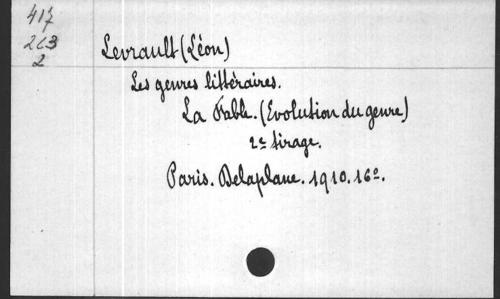 417
263
2
Levrault (Léon)
Les genres littéraires.
La Fable. (Evolution du genre)
2e tirage.
Paris. Delaplane. 1910. 16o.